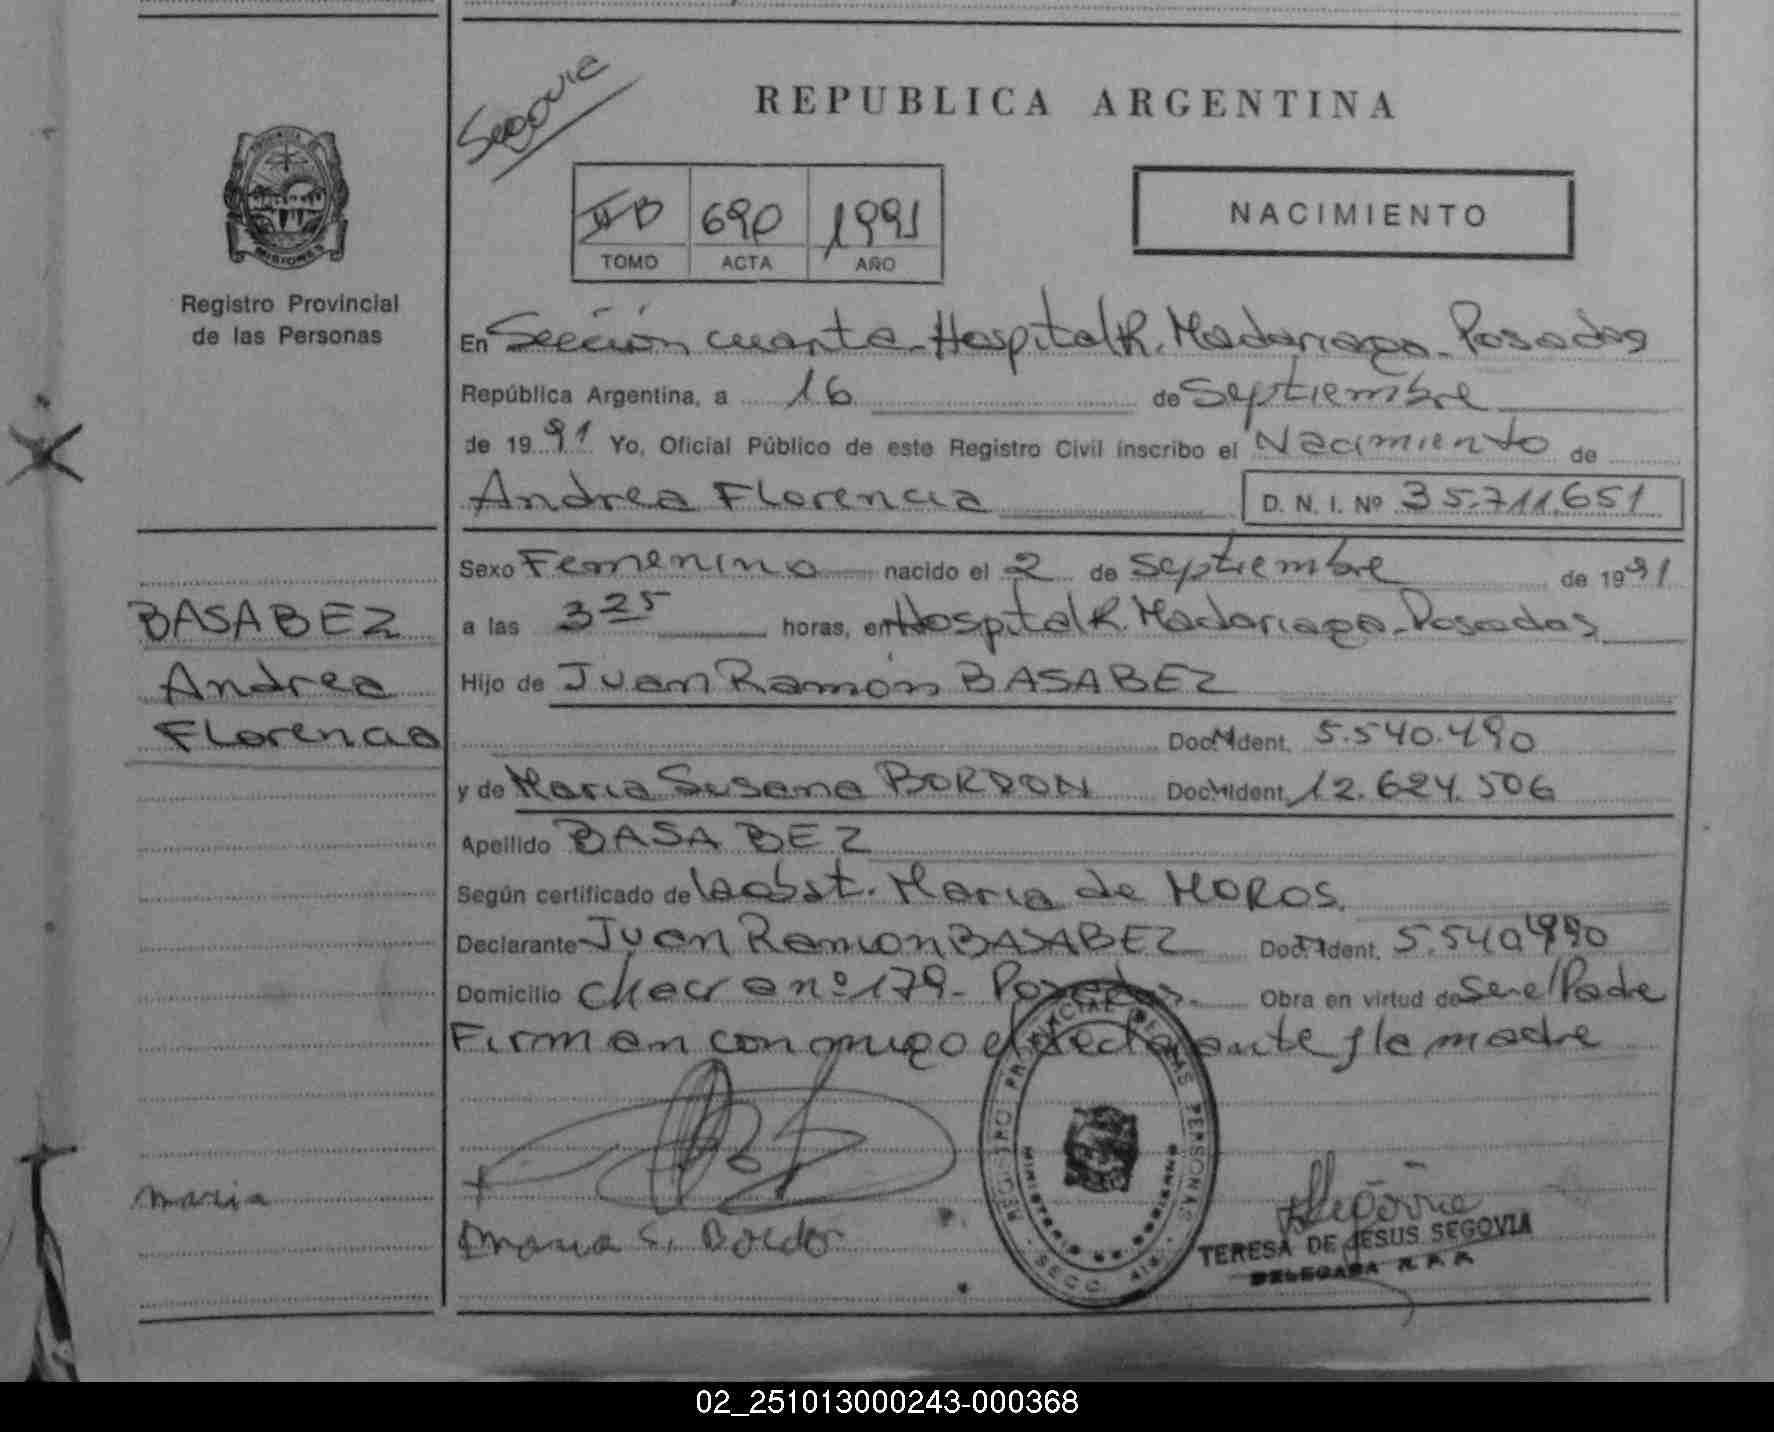 Segovia
REPUBLICA ARGENTINA
II B 690 1991
TOMO ACTA AÑO
NACIMIENTO
PROVINCIA DE
MISIONES
Registro Provincial
de las Personas
En Sección cuarta - Hospital R. Madariaga - Posadas
República Argentina, a 16 de Septiembre
de 1991 Yo, Oficial Público de este Registro Civil inscribo el Nacimiento de
Andrea Florencia D. N. I. Nº 35.711.651
Sexo Femenino nacido el 2 de Septiembre de 1991
a las 3 25 horas, en Hospital R. Madariaga - Posadas
Hijo de Juan Ramón BASABEZ
Doc. M Ident. 5.540.490
y de Maria Susana BORDON Doc. M Ident. 12.624.506
Apellido BASABEZ
Según certificado de la obst. Maria de MOROS.
Declarante Juan Ramon BASABEZ Doc. M Ident. 5.540.490
Domicilio chacra nº 179 - Posadas. Obra en virtud de Ser el Padre
Firman conmigo el declarante y la madre
BASABEZ
Andrea
Florencia
maria
maria S. Bordo
REGISTRO PROVINCIAL DE LAS PERSONAS
MINISTERIO DE GOBIERNO
SECC. 4ta.
Segovia
TERESA DE JESUS SEGOVIA
DELEGADA R. P. P.
02_251013000243-000368